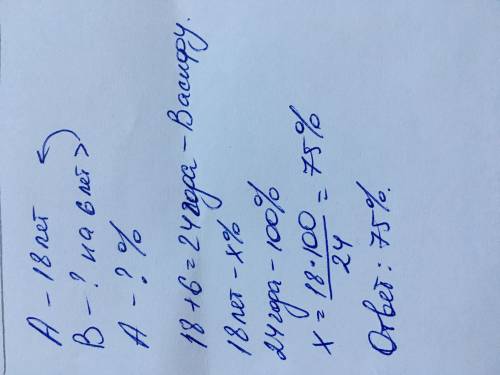 А - 18 лет
В - ? на 6 лет >
А - ? %
18 + 6 = 24 года - Васифу.
18 лет - х %
24 года - 100%
х = 18 · 100 / 24 = 75 %
Ответ: 75 %.